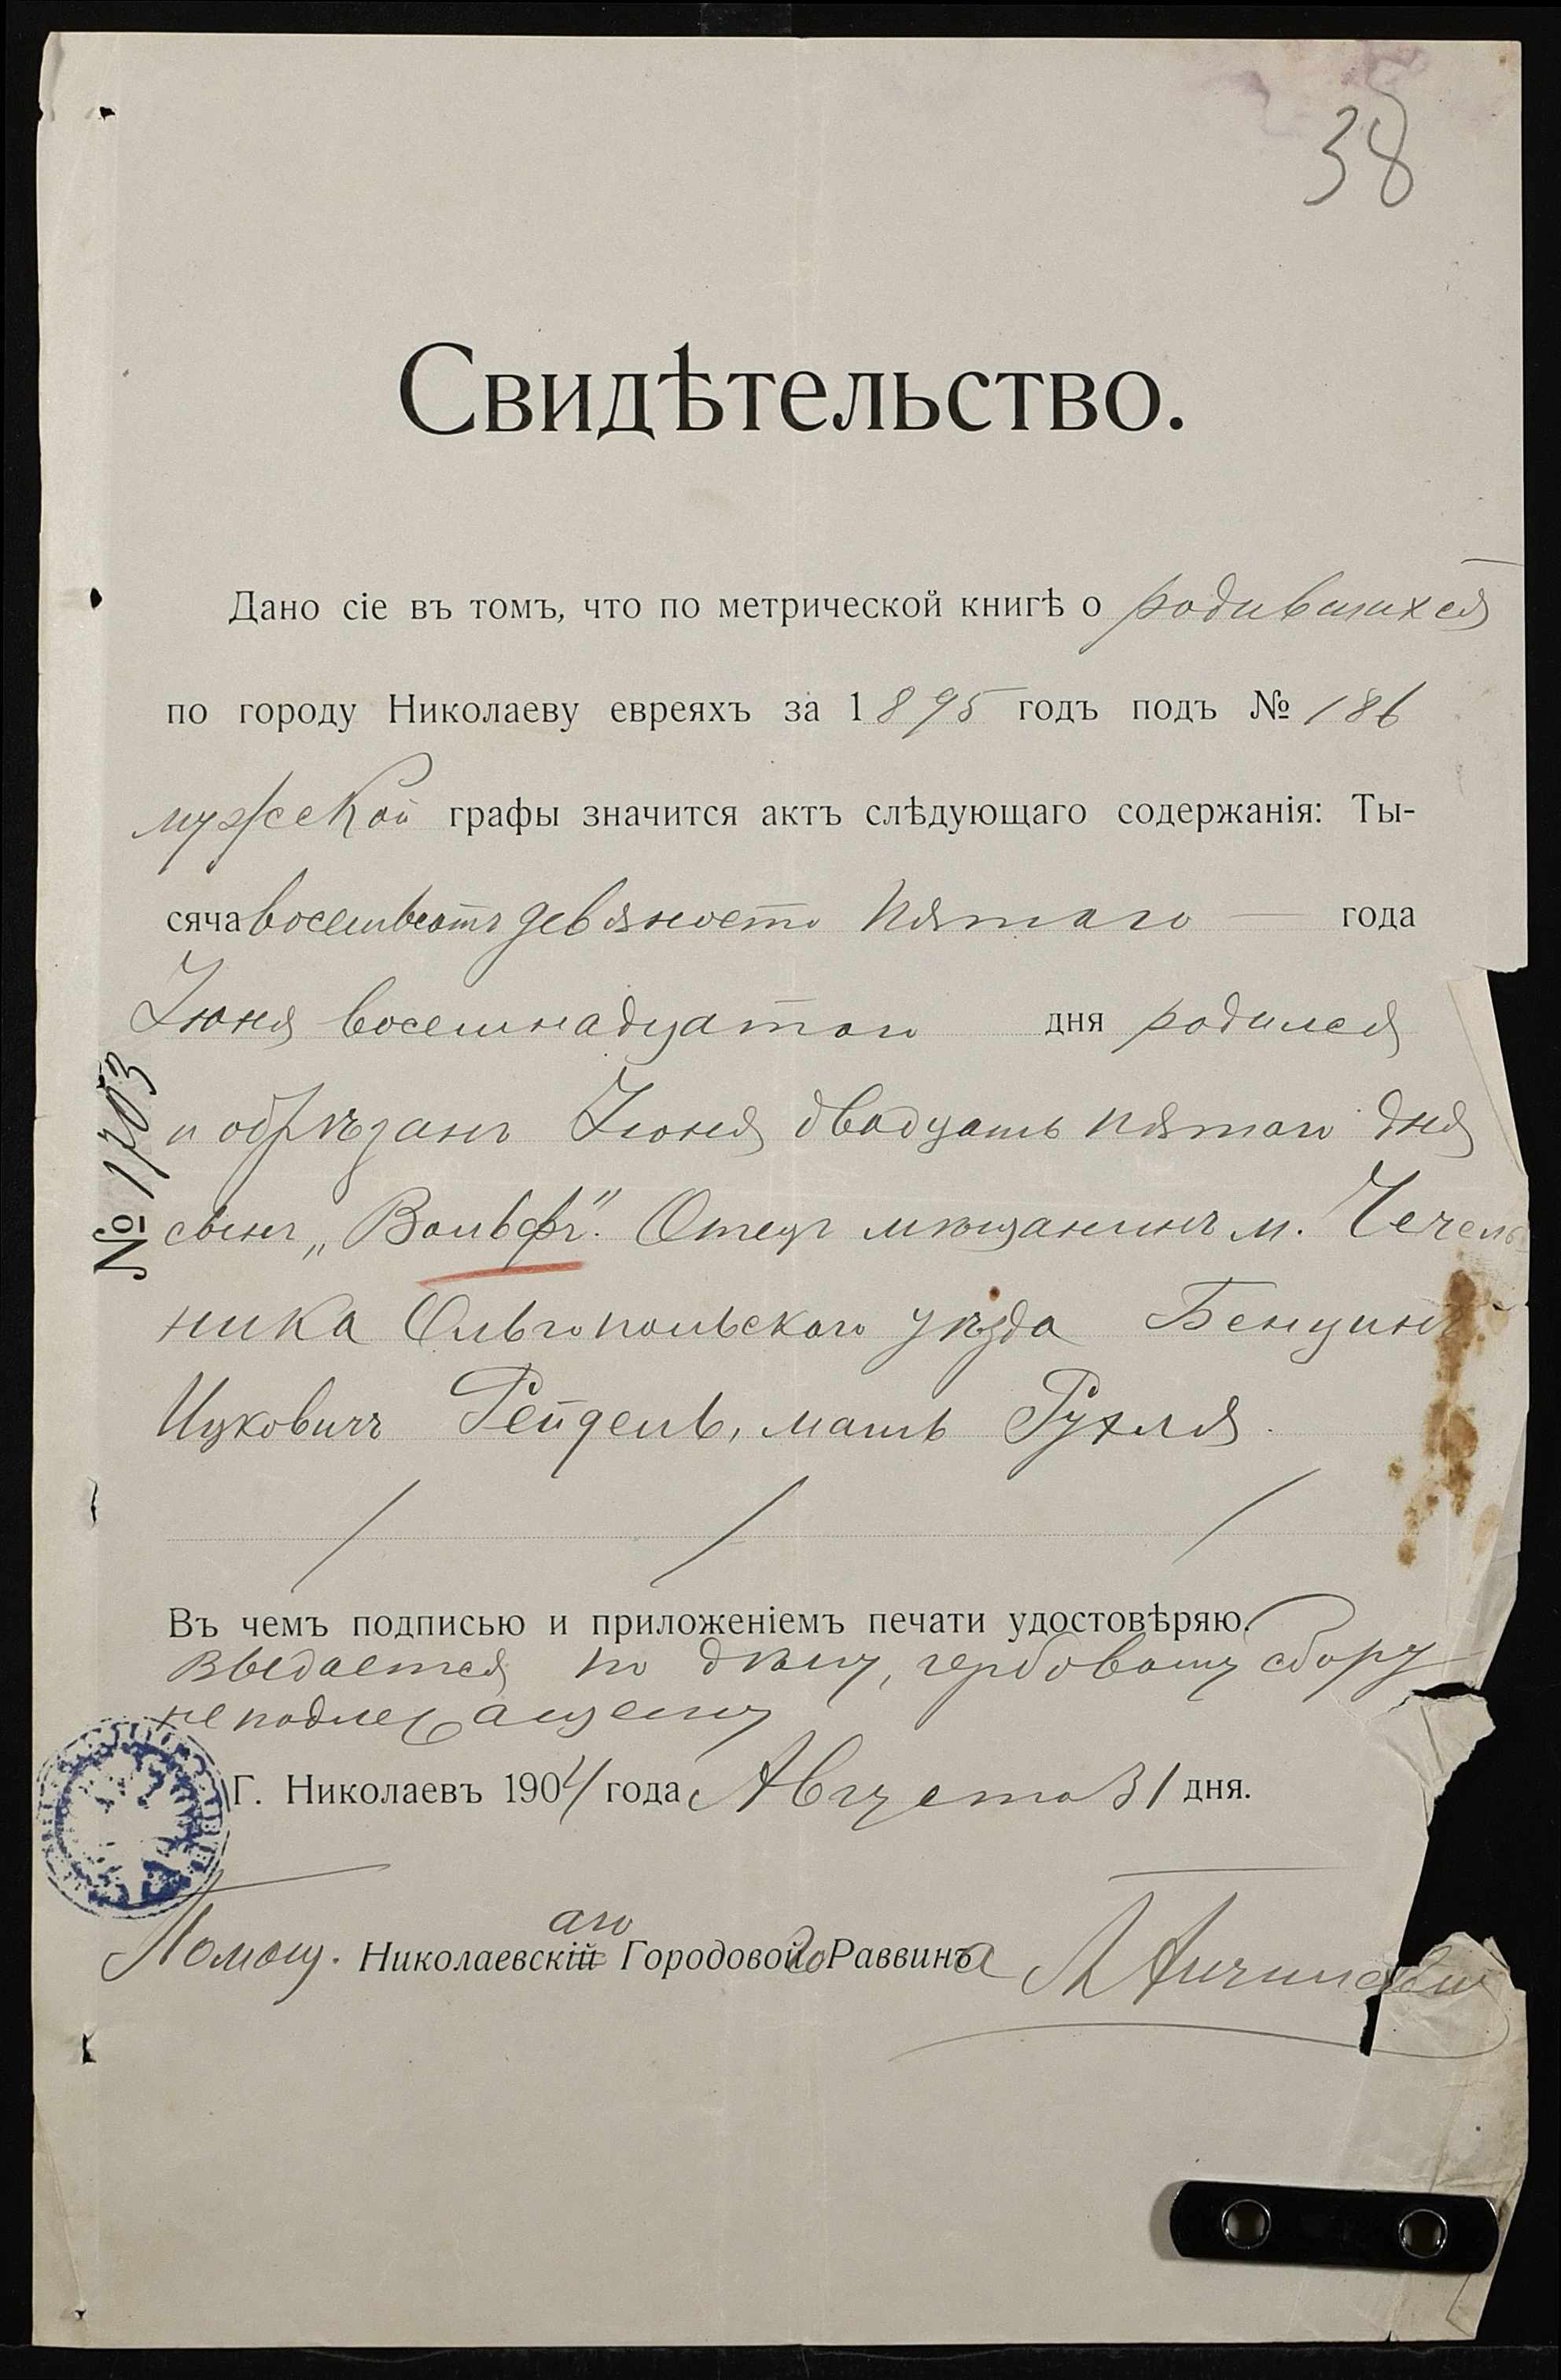 38
Свидѣтельство.
Дано сіе въ томъ, что по метрической книгѣ о родившихся
по городу Николаеву евреяхъ за 1895 годъ подъ № 186
мужской графы значится актъ слѣдующаго содержанія: Ты-
сяча восемьсотъ девяносто пятаго года
Іюня восемнадцатаго дня родился
и обрѣзанъ Іюня двадцать пятаго дня
сынъ „Вольфъ“. Отецъ мѣщанинъ м. Чечель-
ника Ольгопольскаго уѣзда Бенціонъ
Ицковичъ Рейдель, мать Рухля.
Въ чемъ подписью и приложеніемъ печати удостовѣряю.
Выдается по дѣлу, гербовому сбору
не подлежащему
Г. Николаевъ 1904 года Августа 31 дня.
Помощ. Николаевскаго Городового Раввина
№ 1703